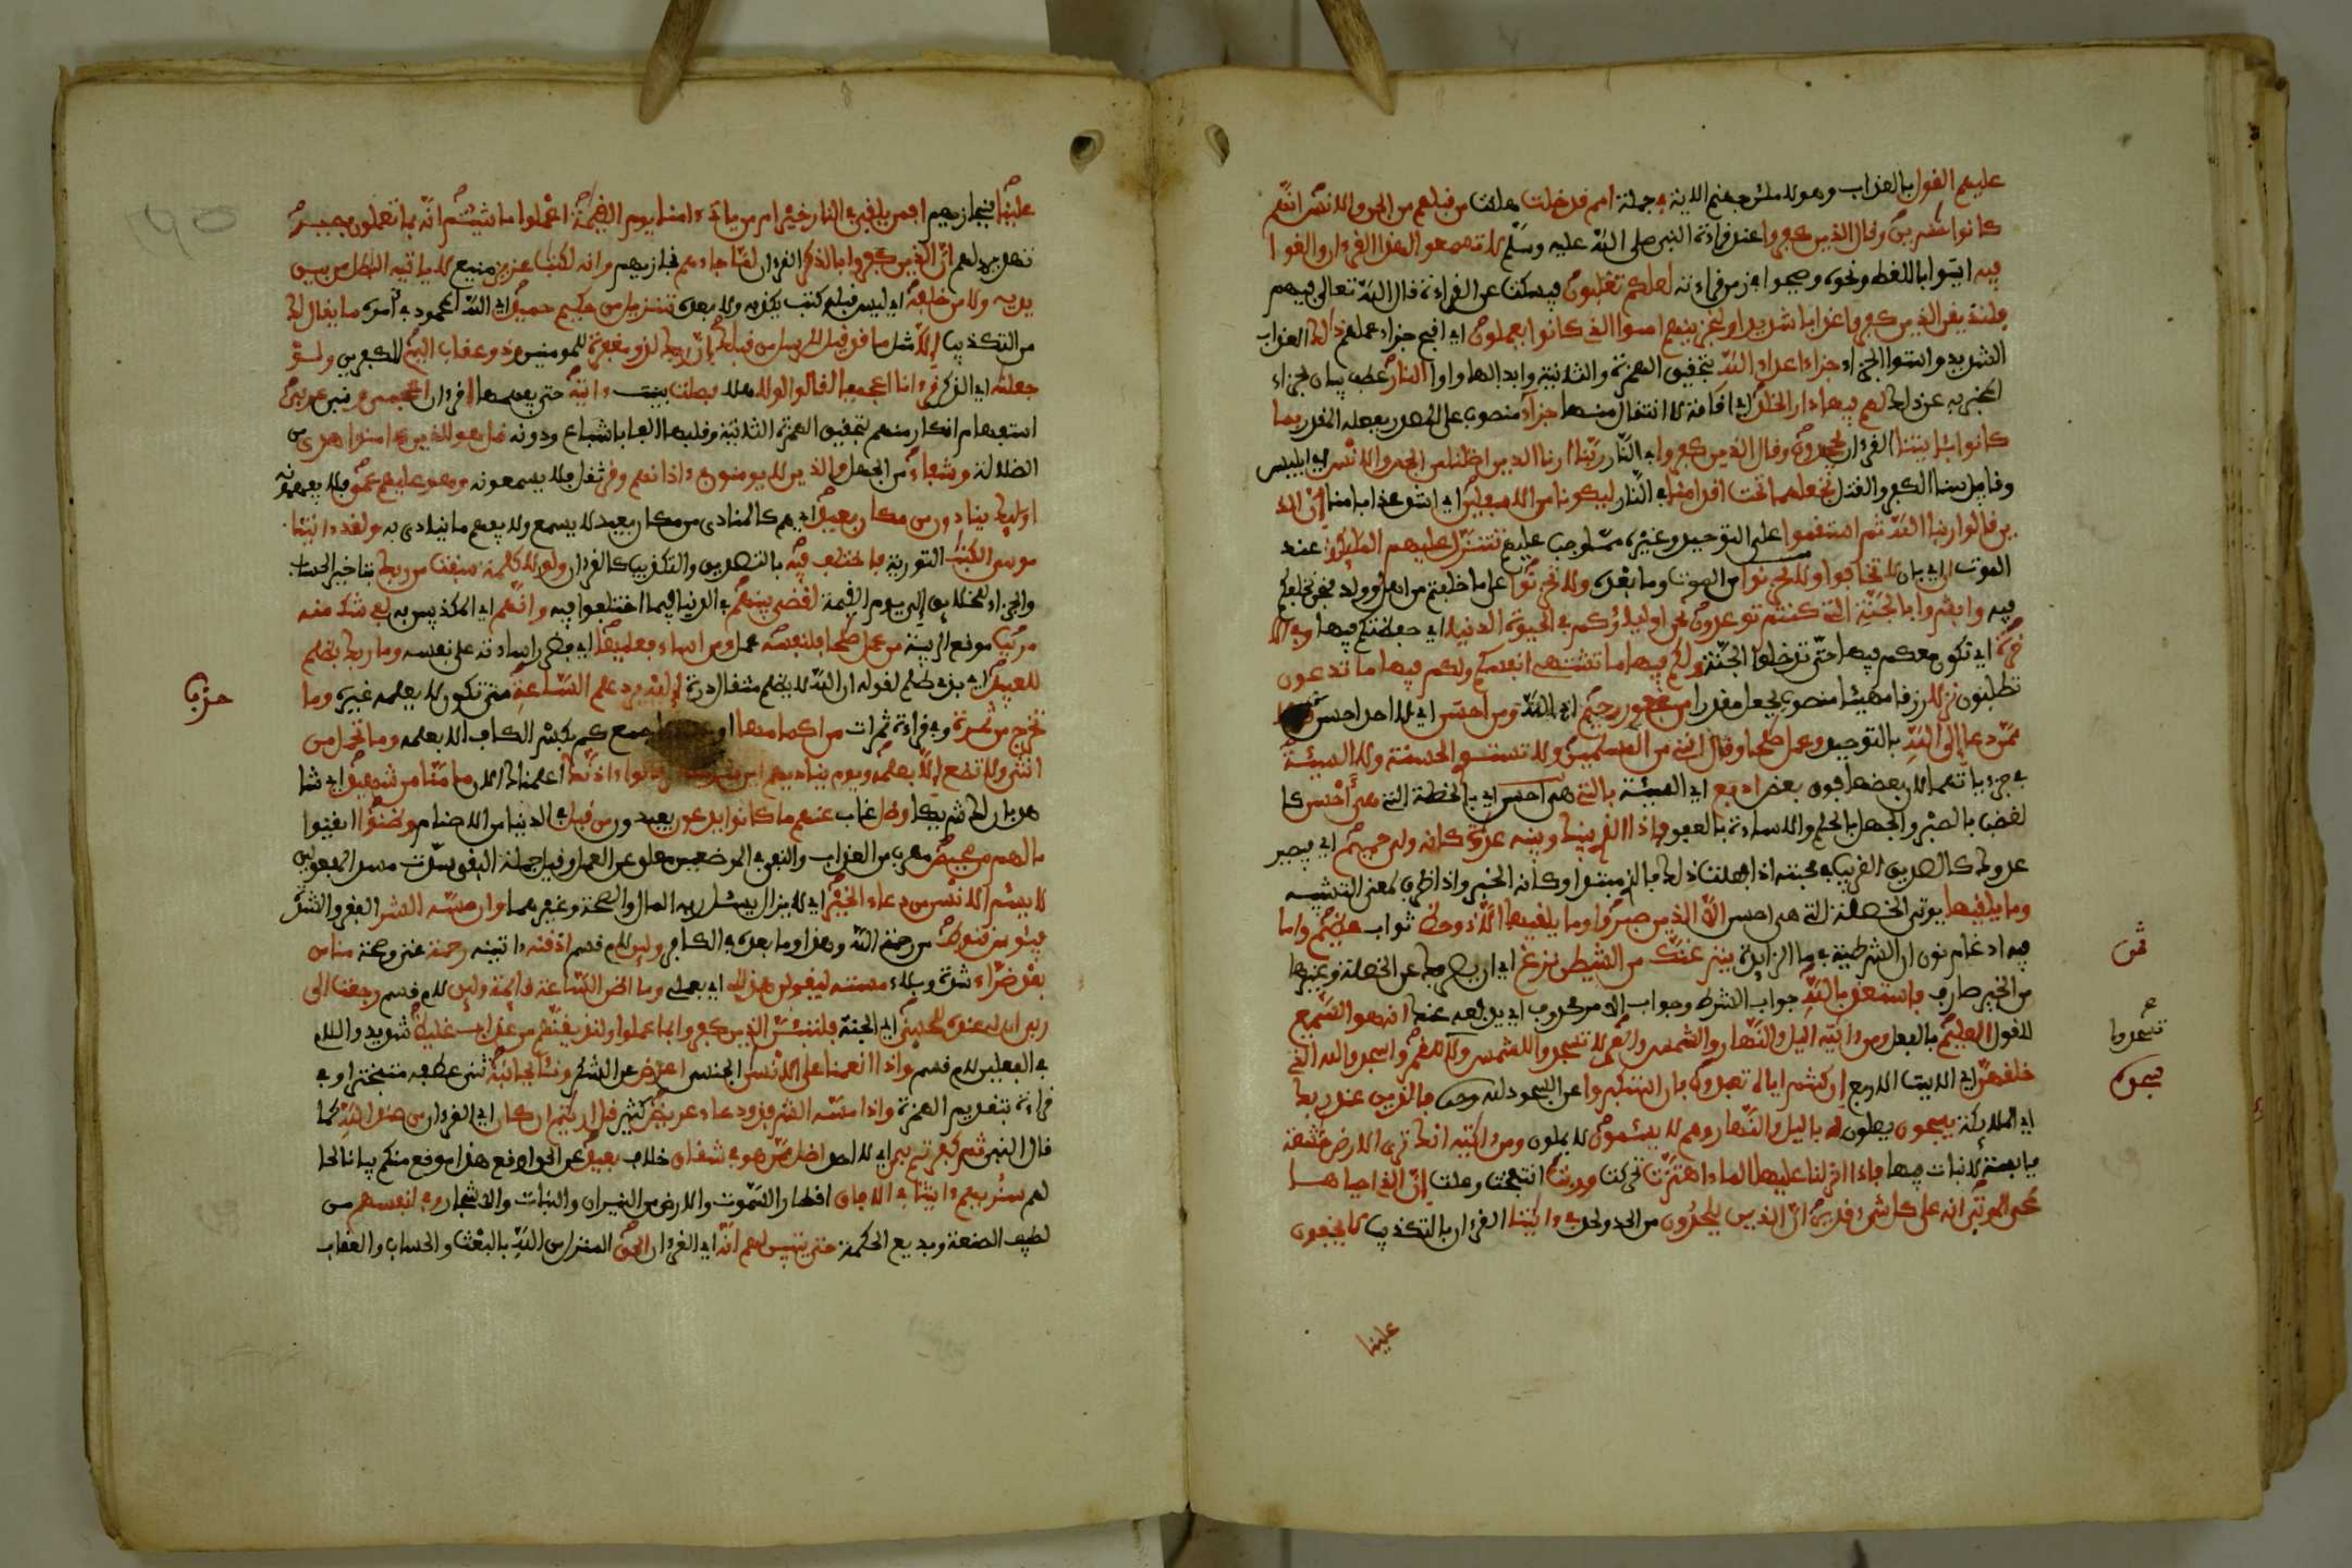 عليهم القول بالعذاب وهو لاملئن جهنم الاية في جملة امم قد خلت هلكت من قبلهم من الجن والانس انهم
كانوا خسرين وقال الذين كفروا عند قراءة النبي صلى الله عليه وسلم لا تسمعوا لهذا القرءان والغوا
فيه ايتوا باللغط ونحوه وصيحوا في زمن قراءته لعلكم تغلبون فيسكت عن القراءة قال الله تعالى فيهم
فلنذيقن الذين كفروا عذابا شديدا ولنجزينهم اسوا الذي كانوا يعملون اي اقبح جزاء عملهم ذلك العذاب
الشديد واسوا الجزاء جزاء اعداء الله بتحقيق الهمزة الثانية وابدالها واوا النار عطف بيان لجزاء
المخبر به عن ذلك لهم فيها دار الخلد اي اقامة لا انتقال منها جزاء منصوب على المصدر بفعله المقدر بما
كانوا بئايتنا القرءان يجحدون وقال الذين كفروا في النار ربنا ارنا الذين اضلنا من الجن والانس اي ابليس
وقابيل سنا الكفر والقتل نجعلهما تحت اقدامنا في النار ليكونا من الاسفلين اي اشد عذابا منا ان الذ
ين قالوا ربنا الله ثم استقموا على التوحيد وغيره مما وجب عليهم تتنزل عليهم المليكة عند
الموت ان اي بان لا تخافوا ولا تحزنوا من الموت وما بعده ولا تحزنوا على ما خلفتم من اهل وولد فنحن نخلفكم
فيه وابشروا بالجنة التي كنتم توعدون نحن اولياؤكم في الحيوة الدنيا اي حفظتكم فيها وفي الا
خرة اي نكون معكم فيها حتى تدخلوا الجنة ولكم فيها ما تشتهي انفسكم ولكم فيها ما تدعون
تطلبون نزلا رزقا مهيئا منصوب بجعل مقدرا من غفور رحيم اي الله ومن احسن اي لا احد احسن قولا
ممن دعا الى الله بالتوحيد وعمل صلحا وقال انني من المسلمين ولا تستوي الحسنة ولا السيئة
في جزءياتهما لان بعضها فوق بعض ادفع اي السيئة بالتي هي احسن اي بالخصلة التي هي احسن كا
لغضب بالصبر والجهل بالحلم والاساءة بالعفو فاذا الذي بينك وبينه عدوة كانه ولي حميم اي فيصير
عدوك كالصديق القريب في محبته اذا فعلت ذلك فالذي مبتدا وكانه الخبر واذا ظرف لمعنى التشبيه
وما يلقيها يوتى الخصلة التي هي احسن الا الذين صبروا وما يلقيها الا ذو حظ ثواب عظيم واما
فيه ادغام نون ان الشرطية في ما الزايدة ينزغنك من الشيطن نزغ اي ان يصرفك عن الخصلة وغيرها
من الخير صارف فاستعذ بالله جواب الشرط وجواب الامر محذوف اي يدفعه عنك انه هو السميع
للقول العليم بالفعل ومن ءايته اليل والنهار والشمس والقمر لا تسجدوا للشمس ولا للقمر واسجدوا لله الذي
خلقهن اي الايت الاربع ان كنتم اياه تعبدون فان استكبروا عن السجود لله وحده فالذين عند ربك
اي المليكة يسبحون يصلون له باليل والنهار وهم لا يسئمون لا يملون ومن ءايته انك ترى الارض خشعة
يابسة لا نبات فيها فاذا انزلنا عليها الماء اهتزت تحركت وربت انتفخت وعلت ان الذي احياها
لمحي الموتى انه على كل شيء قدير ان الذين يلحدون من الحد ولحد في ءايتنا القرءان بالتكذيب لا يخفون
علينا
ثمن
تسجدوا
علينا فنجازيهم افمن يلقى في النار خير ام من ياتي ءامنا يوم القيمة اعملوا ما شئتم انه بما تعملون بصير
تهديد لهم ان الذين كفروا بالذكر القرءان لما جاءهم نجازيهم وانه لكتب عزيز منيع لا ياتيه البطل من بين
يديه ولا من خلفه اي ليس قبله كتب يكذبه ولا بعده تنزيل من حكيم حميد اي الله المحمود في امره ما يقال لك
من التكذيب الا مثل ما قد قيل للرسل من قبلك ان ربك لذو مغفرة للمومنين وذو عقاب اليم للكفرين ولو
جعلنه اي الذكر قرءانا اعجميا لقالوا لولا هلا فصلت بينت ءايته حتى نفهمها اقرءان اعجمي ونبي عربي
استفهام انكار منهم بتحقيق الهمزة الثانية وقلبها الفا باشباع ودونه قل هو للذين ءامنوا هدى من
الضلالة وشفاء من الجهل والذين لا يومنون في ءاذانهم وقر ثقل فلا يسمعونه وهو عليهم عمى فلا يفهمونه
اوليك ينادون من مكان بعيد اي هم كالمنادى من مكان بعيد لا يسمع ولا يفهم ما ينادى به ولقد ءاتينا
موسى الكتب التورية فاختلف فيه بالتصديق والتكذيب كالقرءان ولولا كلمة سبقت من ربك بتاخير الحساب
والجزاء للخلايق الى يوم القيمة لقضي بينهم في الدنيا فيما اختلفوا فيه وانهم اي المكذبين به لفي شك منه
مريب موقع الريبة من عمل صلحا فلنفسه عمل ومن اساء فعليها اي فضرر اساءته على نفسه وما ربك بظلم
للعبيد اي بذي ظلم لقوله ان الله لا يظلم مثقال ذرة اليه يرد علم الساعة متى تكون لا يعلمه غيره وما
تخرج من ثمرة وفي قراءة ثمرات من اكمامها جمع كم بكسر الكاف الا بعلمه وما تحمل من
انثى ولا تضع الا بعلمه ويوم يناديهم اين قالوا ءاذنك اعلمناك الان ما منا من شهيد اي شا
هد بان لك شريكا وضل غاب عنهم ما كانوا يدعون يعبدون من قبل في الدنيا من الاصنام وظنوا ايقنوا
ما لهم من محيص مهرب من العذاب والنفي في الموضعين معلق عن العمل وقيل جملة النفي سدت مسد المفعولين
لا يسئم الانسن من دعاء الخير اي لا يزال يسئل ربه المال والصحة وغيرهما وان مسه الشر الفقر والشدة
فيئوس قنوط من رحمة الله وهذا وما بعده في الكافر ولين لام قسم اذقنه ءاتينه رحمة غنى وصحة منا من
بعد ضراء شدة وبلاء مسته ليقولن هذا لي اي بعملي وما اظن الساعة قايمة ولين لام قسم رجعت الى
ربي ان لي عنده للحسنى اي الجنة فلننبئن الذين كفروا بما عملوا ولنذيقنهم من عذاب غليظ شديد واللام
في الفعلين لام قسم واذا انعمنا على الانسن الجنس اعرض عن الشكر ونئا بجانبه ثنى عطفه متبخترا وفي
قراءة بتقديم الهمزة واذا مسه الشر فذو دعاء عريض كثير قل ارءيتم ان كان اي القرءان من عند الله كما
قال النبي ثم كفرتم به من اي لا احد اضل ممن هو في شقاق خلاف بعيد عن الحق اوقع هذا موقع منكم بيانا لحا
لهم سنريهم ءايتنا في الافاق اقطار السموت والارض من النيران والنبات والاشجار وفي انفسهم من
لطيف الصنعة وبديع الحكمة حتى يتبين لهم انه اي القرءان الحق المنزل من الله بالبعث والحساب والعقاب
حزب